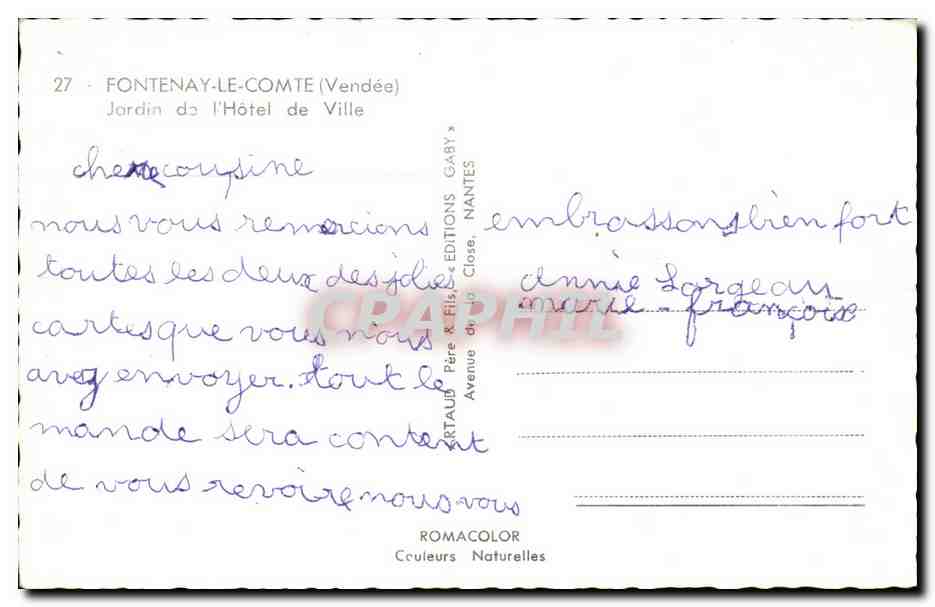 27 - FONTENAY-LE-COMTE (Vendée)
Jardin de l'Hôtel de Ville
chere cousine
nous vous remercions
toutes les deux des jolies
cartes que vous n'ous
avez envoyer. tout le
monde sera content
de vous revoire nous vous
embrassons bien fort
annie Lorgeau
marie - françoise
ARTAUD Père & Fils, « EDITIONS GABY »
Avenue de la Close, NANTES
CPAPHIL
ROMACOLOR
Couleurs Naturelles